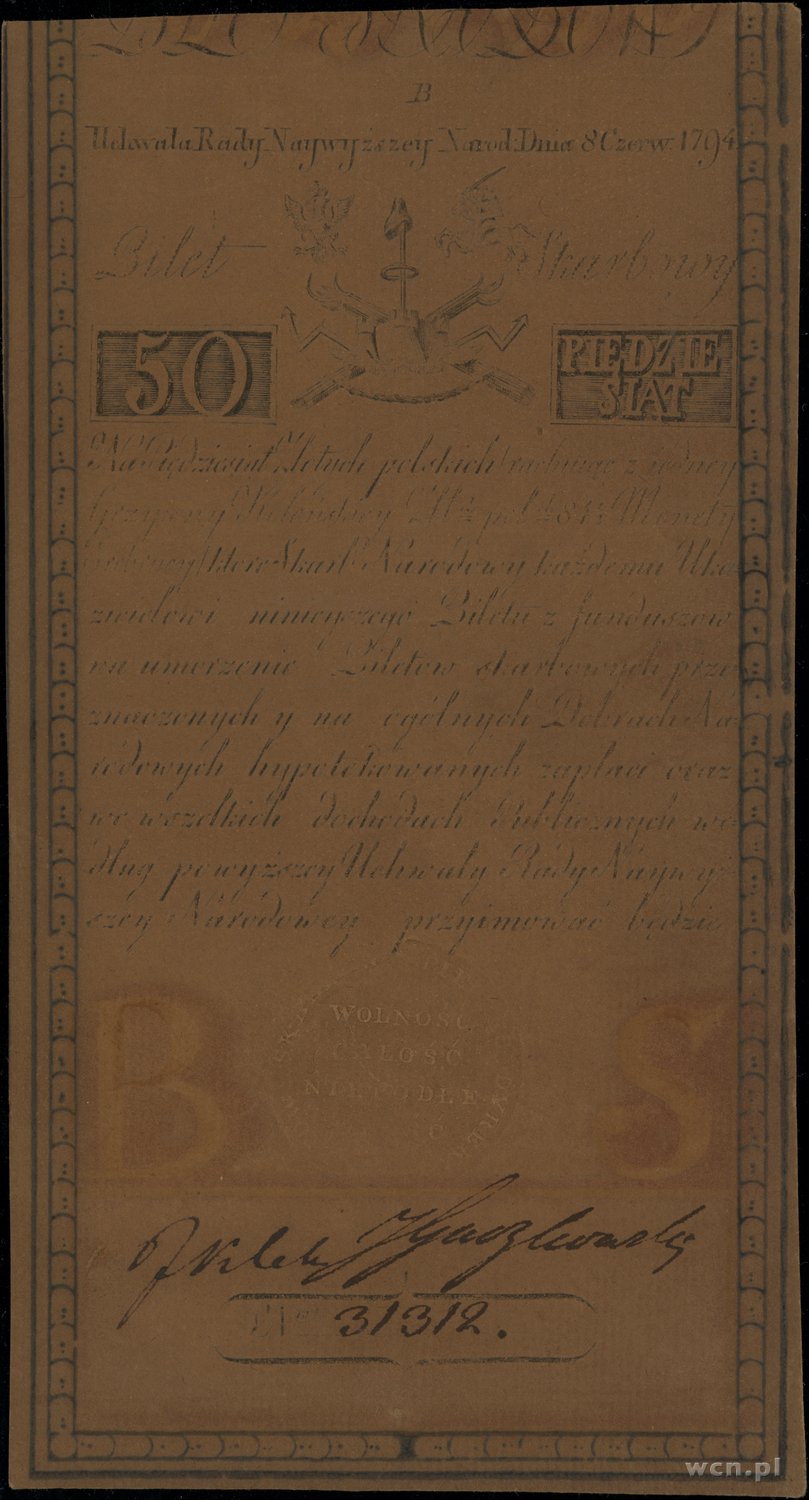 B
Uchwała Rady Naywyższey Narod: Dnia 8 Czerw: 1794
Bilet Skarbowy
50 PIĘDZIE
SIAT
Na Pięдziesiąt Złotych polskich rachuiąc z jedney
Grzywny Kolońskiey Monety
Skarb Narodowy każdemu Uka
zicielowi ninieyszego Biletu z funduszow
na umorzenie Biletow skarbowych prze
znaczonych y na ogólnych Dobrach Na
rodowych hypotekowanych zapłaci oraz
we wszelkich dochodach Publicznych we
dług powyższey Uchwały Rady Naywyż
szey Narodowey przyimować będzie
WOLNOŚĆ
CAŁOŚĆ
NIEPODLE
B S
31312.
wcn.pl